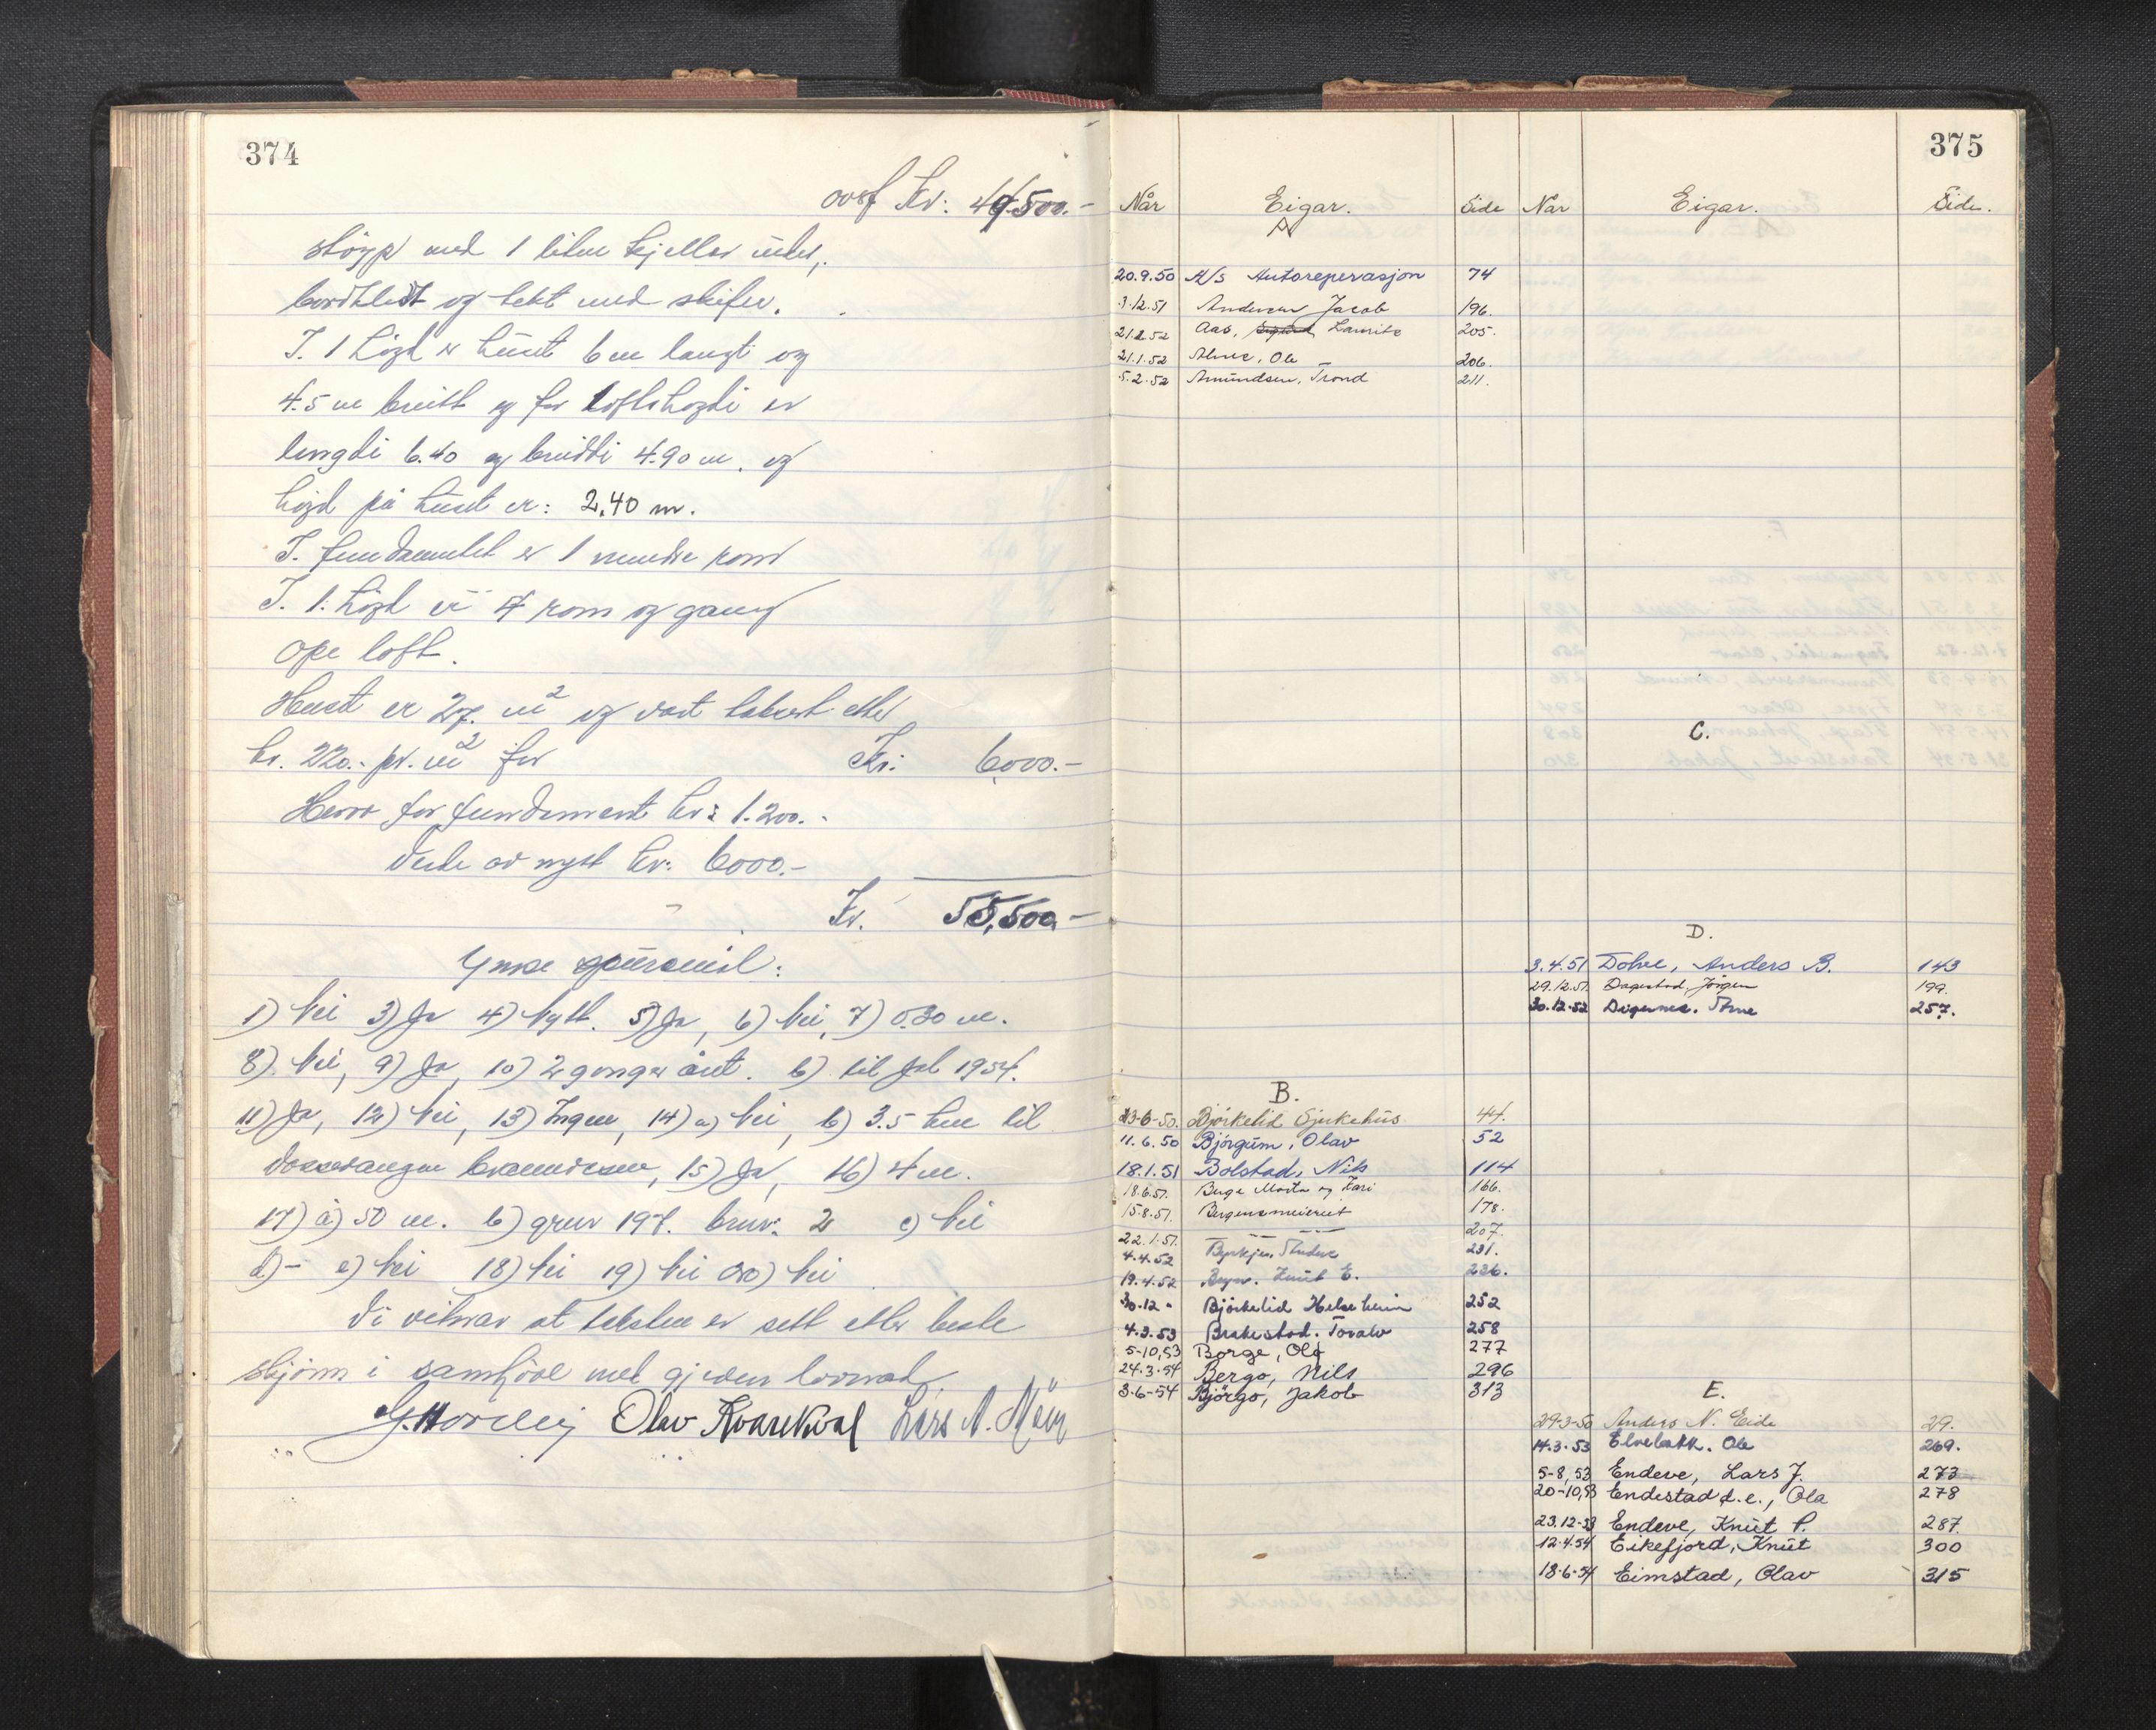 374
ovf Kr: 49.500.-
støypt med 1 liten kjellar under,
bordkledt og tekt med skifer.
I. 1 högd er huset 6 m langt og
4.5 m breitt og for loftshögdi er
lengdi 6.40 og breiddi 4.90 m. og
högd på huset er: 2.40 m.
I. fundamentet er 1 mindre rom
I. 1. högd er 4 rom og gang
Ope loft.
Huset er 27. m² og vart taksert etter
kr. 220.- pr. m² for Kr: 6000.-
Herav for fundament kr: 1.200.-
Verde av nytt kr: 6000.-
Kr. 55,500.-
Ymse spursmål:
1) Nei 3) Ja 4) Nytt. 5) Ja, 6) Nei, 7) 0.30 m.
8) Nei, 9) Ja, 10) 2 gonger året. b) til Jol 1954.
11) Ja, 12) Nei, 13) Ingen, 14) a) Nei, b) 3.5 km til
Vossevangen brannvesen, 15) Ja, 16) 4 m.
17) a) 50 m. b) grnr 197. brnr: 2 c) Nei
d) - e) Nei 18) Nei 19) Nei 20) Nei
Vi vitnar at taksten er sett etter beste
skjønn i samhöve med gjeven lovnad
Olav Kvarekval Lars N.
375
Når Eigar. Side Når Eigar. Side.
A
20.9.50 A/s Autoreperasjon 74
3.12.51 Andersen Jacob 196.
21.1.52 Aas, Sigurd Lauritz 205.
21.1.52 Ole 206.
5.2.52 Amundsen, Trond 211.
C.
D.
3.4.51 Dolve, Anders B. 143
29.12.51. Dagestad, Jørgen 199.
30.12.52 Digernes. Arne 257.
B.
23-6-50. Bjørkelid Sjukehus 44.
11.6.50 Bjørgum, Olav 52
18.1.51 Bolstad, Nils 114
18.6.51. Berge Marta og Kari 166.
15.8.51. Bergensmeieriet 178.
22.1.51. — — — 207.
4.4.52 Byrkje, 231.
19.4.52 Knut E. 236.
30.12 " Bjørkelid Helseheim 252
4.3.53 Brakestad. Toralv 258
5-10,53 Borge, Ola 277
24.3-54 Bergo, Nils 296
3-6-54 Bjørgo, Jakob 313
E.
29-3-50 Anders N. Eide 29.
14.3.53 Elvebakk. Ole 269.
5-8,53 Endeve, Lars J. 273
20-10,53 Endestad d.e., Ola 278
23.12-53 Endeve, Knut P. 287.
12.4.54 Eikefjord, Knut 300
18-6-54 Eimstad, Olav 315